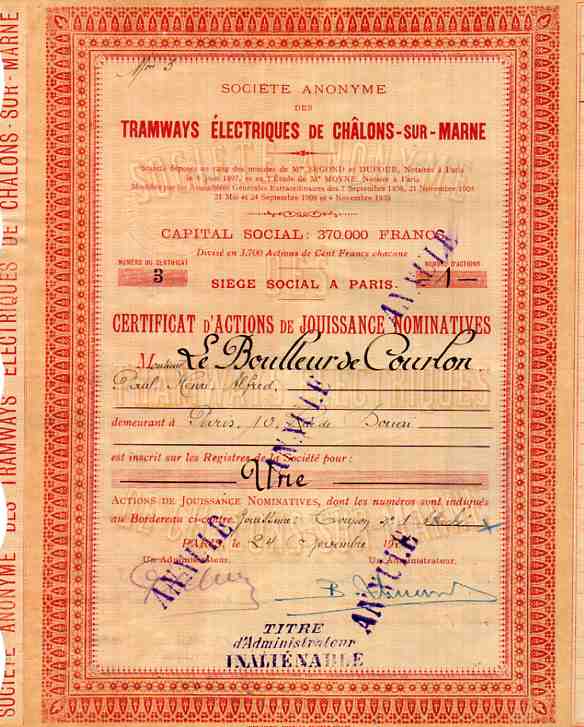 Nos 3
SOCIÉTÉ ANONYME
DES
TRAMWAYS ÉLECTRIQUES DE CHÂLONS-SUR-MARNE
Société déposée au rang des minutes de Mes SEGOND et DUFOUR, Notaires à Paris
le 8 Juin 1897, et en l'Étude de Me MOYNE, Notaire à Paris
Modifiés par les Assemblées Générales Extraordinaires des 7 Septembre 1898, 21 Novembre 1903
21 Mai et 24 Septembre 1908 et 4 Novembre
CAPITAL SOCIAL : 370.000 FRANCS
Divisé en 3.700 Actions de Cent Francs chacune
NUMÉRO DU CERTIFICAT
3
D'ACTIONS
1
SIÈGE SOCIAL A PARIS
CERTIFICAT D'ACTIONS DE JOUISSANCE NOMINATIVES
Monsieur Le Boulleur de Courlon
Paul, Henri, Alfred,
demeurant à Paris, 10, Rue de Douai
est inscrit sur les Registres de la Société pour :
Une
ACTIONS DE JOUISSANCE NOMINATIVES, dont les numéros sont indiqués
au Bordereau ci-contre. Jouissance Coupon n° 1
PARIS, le 24 Novembre
Un Administrateur.
Un Administrateur.
ANNULÉ
ANNULÉ
ANNULÉ
ANNULÉ
TITRE
d'Administrateur
INALIÉNABLE
SOCIÉTÉ ANONYME DES TRAMWAYS ÉLECTRIQUES DE CHÂLONS-SUR-MARNE